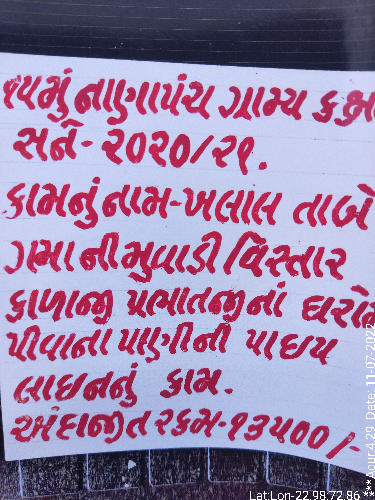 ૧૫મું નાણાપંચ ગ્રામ્ય કક્ષા
સને-૨૦૨૦/૨૧.
કામનું નામ-ખલાલ તાબે
ગમાની મુવાડી વિસ્તાર
કાળાજી પ્રભાતજીનાં ઘરોમ
પીવાના પાણીની પાઇપ
લાઇનનું કામ.
અંદાજીત રકમ-૧૩૫૦૦/-
Lat:Lon-22.98 72.86 ***Acur:4.29 Date: 11-07-2022